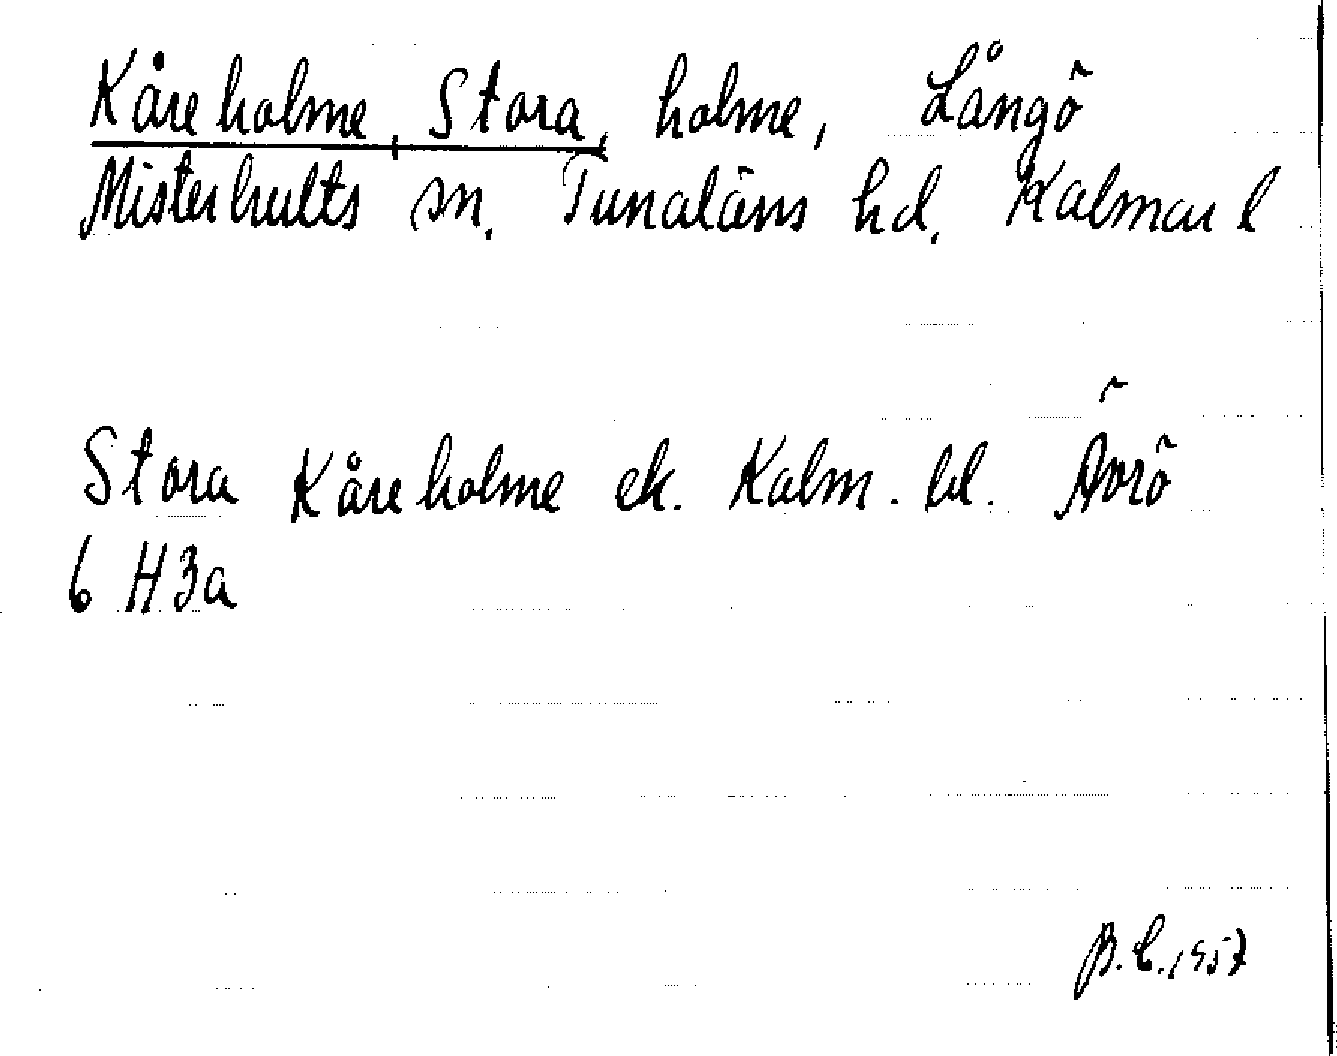 Kåreholme, Stora, holme, Långö
Misterhults sn. Tunaläns hd. Kalmar l
Stora Kåreholme ek. Kalm. bl. Ävrö
6 H3a
B.E. 1957